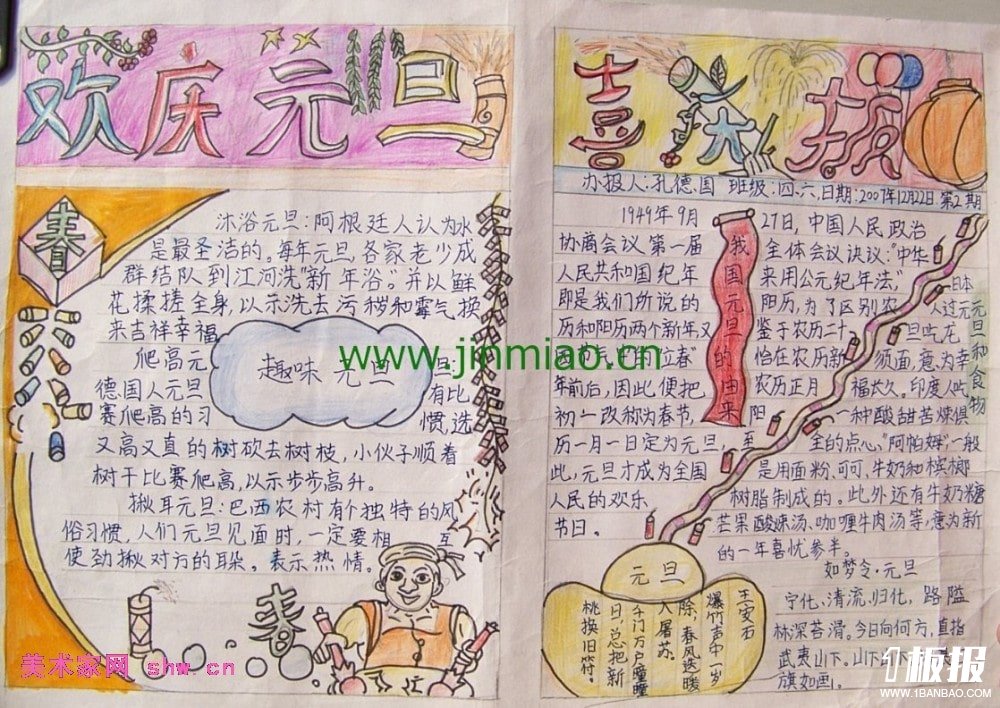 欢庆元旦
春
沐浴元旦:阿根廷人认为水
是最圣洁的。每年元旦各家老少成
群结队到江河洗“新年浴”。并以鲜
花揉搓全身,以示洗去污秽和霉气,换
来吉祥幸福
爬高元旦:
德国人元旦有比
赛爬高的习惯,选
又高又直的树砍去树枝,小伙子顺着
树干比赛爬高,以示步步高升。
揪耳元旦:巴西农村有个独特的风
俗习惯,人们元旦见面时,一定要相互
使劲揪对方的耳朵。表示热情。
趣味元旦
春
美术家网 shw.cn
www.jinmiao.cn
喜大报
办报人:扎德国 班级:四.六 日期:2007年12月22日 第2期
1949年9月27日,中国人民政治
协商会议第一届全体会议决议:“中华
人民共和国纪年采用公元纪年法”,
即是我们所说的阳历,为了区别农
历和阳历两个新年又鉴于农历二十
四节气中的“立春”恰在农历新
年前后,因此便把农历正月
初一改称为春节,阳
历一月一日定为元旦,至
此,元旦才成为全国
人民的欢乐
节日。
我国元旦的由来
元旦和食物
日本
人过元
旦吃龙
须面,意为幸
福太久。印度人吃
一种酸甜苦辣俱
全的点心,“阿帕姆”一般
是用面粉、可可、牛奶和槟榔
树脂制成的。此外还有牛奶糖
芒果酸辣汤、咖喱牛肉汤等,意为新
的一年喜忧参半。
元旦
王安石
爆竹声中一岁
除,春风送暖
入屠苏。
千门万户曈曈
日,总把新
桃换旧符。
如梦令·元旦
宁化、清流、归化,路隘
林深苔滑。今日向何方,直指
武夷山下。山下
旗如画。
1板报
WWW.1BANBAO.COM